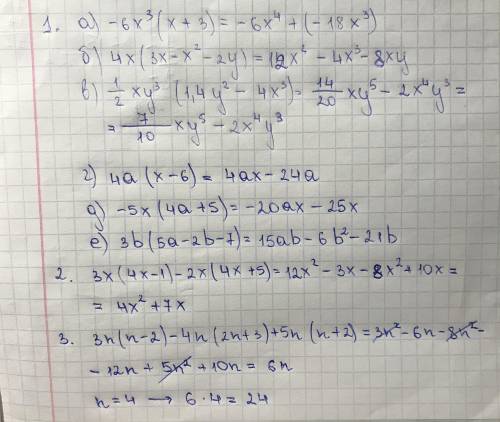 1. а) -6x³(x+3) = -6x⁴+(-18x³)
б) 4x(3x-x²-2y) = 12x² - 4x³ - 8xy
в) 1/2 xy³ (1,4y² - 4x³) = 14/20 xy⁵ - 2x⁴y³ =
= 7/10 xy⁵ - 2x⁴y³
г) 4a(x-6) = 4ax - 24a
д) -5x(4a+5) = -20ax - 25x
е) 3b(5a-2b-7) = 15ab - 6b² - 21b
2. 3x(4x-1) - 2x(4x+5) = 12x² - 3x - 8x² + 10x =
= 4x² + 7x
3. 3n(n-2) - 4n(2n+3) + 5n(n+2) = 3n² - 6n - 8n² -
- 12n + 5n² + 10n = 6n
n=4 → 6·4 = 24